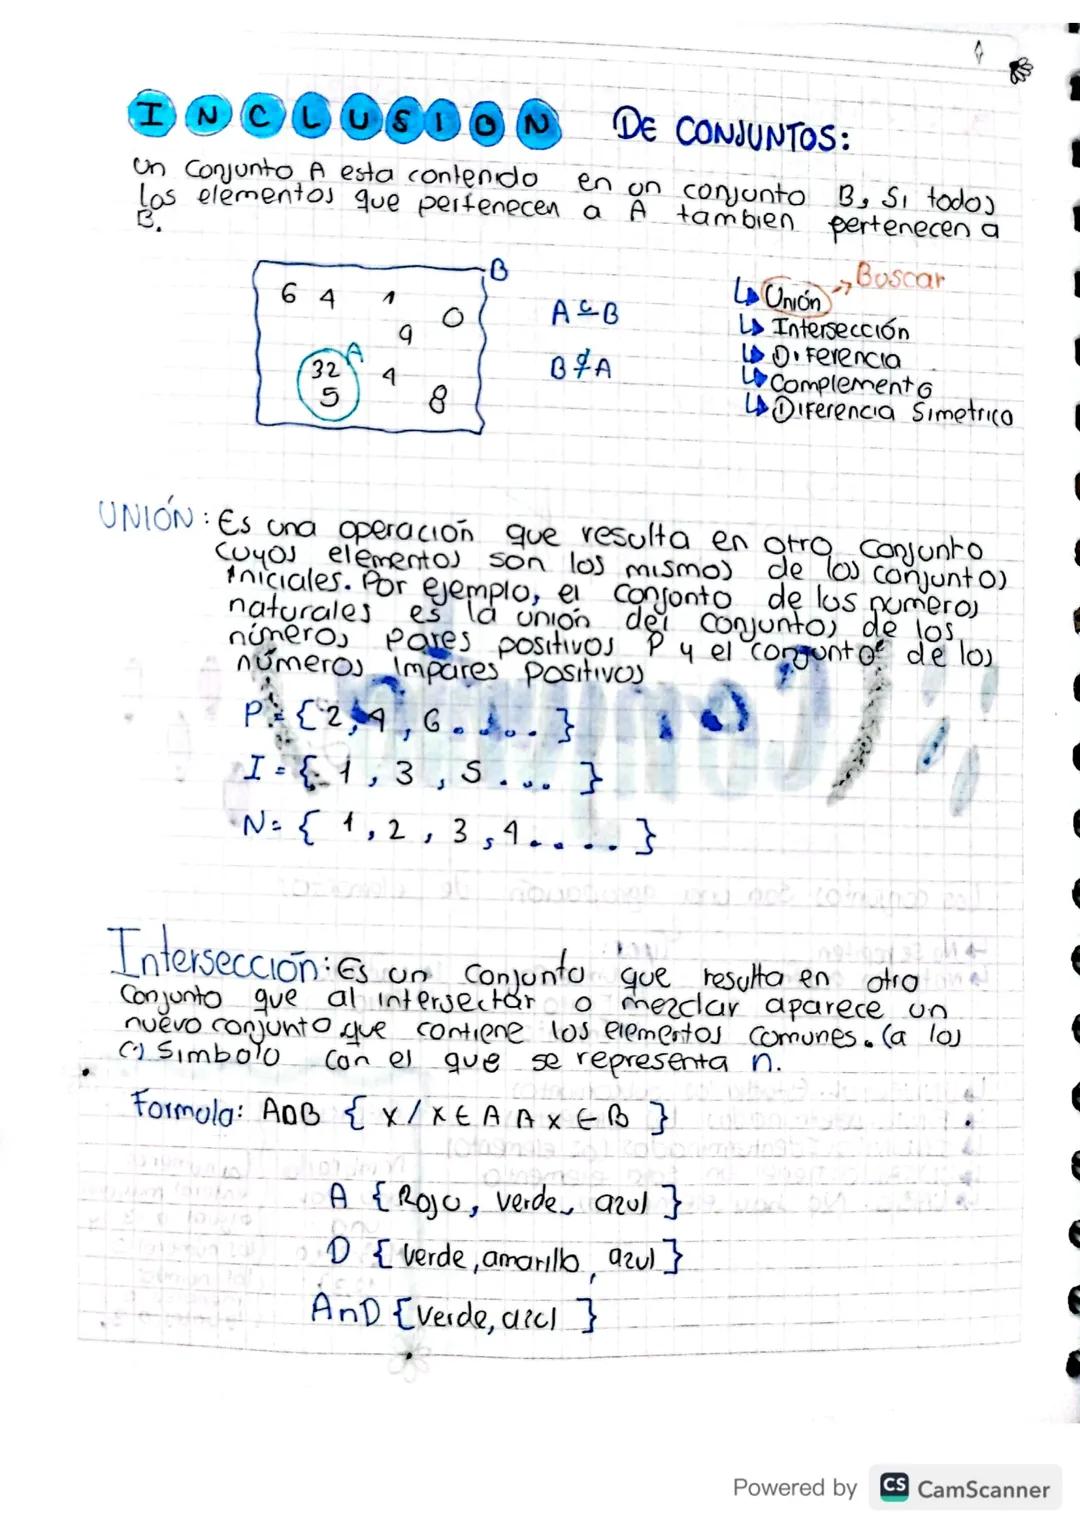 INCLUSION DE CONJUNTOS:
Un Conjunto A esta contenido en un conjunto B, Si todos
los elementos que pertenecen a A tambien pertenecen a
B.
B
6 4 1
0
9
A
32
5
4
8
A ⊆ B
B ⊄ A
Unión → Buscar
Intersección
Diferencia
Complemento
Diferencia Simetrico
UNIÓN: Es una operación que resulta en otro conjunto
cuyos elementos son los mismos de los conjuntos
iniciales. Por ejemplo, el conjonto de los numeros
naturales es la unión del conjuntos de los
números pares positivos P y el conjunto de los
números impares positivos
P = { 2, 4, 6 . . . . }
I = { 1, 3, 5 . . . . }
N = { 1, 2, 3, 4 . . . . . }
Intersección: Es un Conjunto que resulta en otro
Conjunto que al intersectar o mezclar aparece un
nuevo conjunto que contiene los elementos comunes. (a los
c) Simbolo con el que se representa n.
Formula: A∩B { x / x ∈ A ∧ x ∈ B }
A { Rojo, verde, azul }
D { verde, amarillo, azul }
A∩D { Verde, azul }
Powered by CS CamScanner